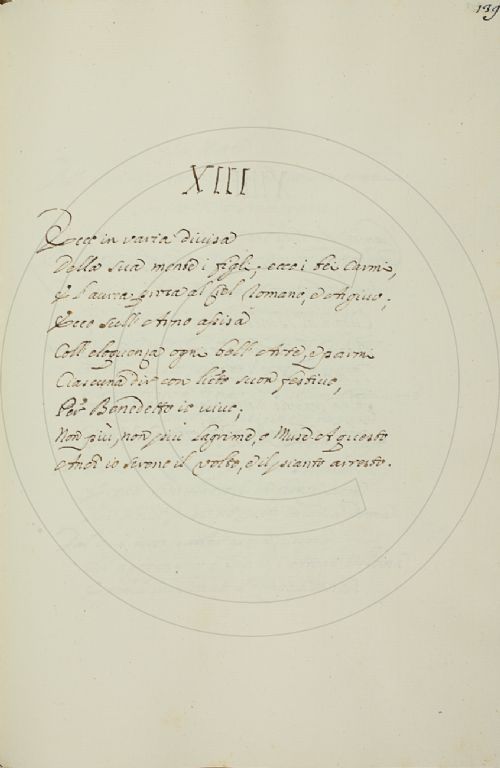 139
XIII
Ecco in varia divisa
Della sua mente i figli, ecco i bei Carmi,
E l'aurea prosa al Ciel Romano, e Argivo;
Ecco sull' Arno assisa
Coll' eloquenza ogni bell' Arte, e parmi
Ciascuna dir con lieto suon festivo,
Per Benedetto io vivo;
Non più, non più lagrime, o Muse. A questo
Anch' io sereno il volto, e il pianto arresto.